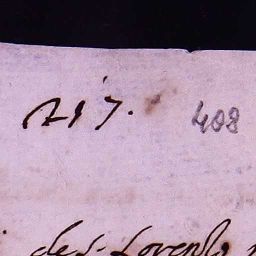 217. 408
des. Lorenzo